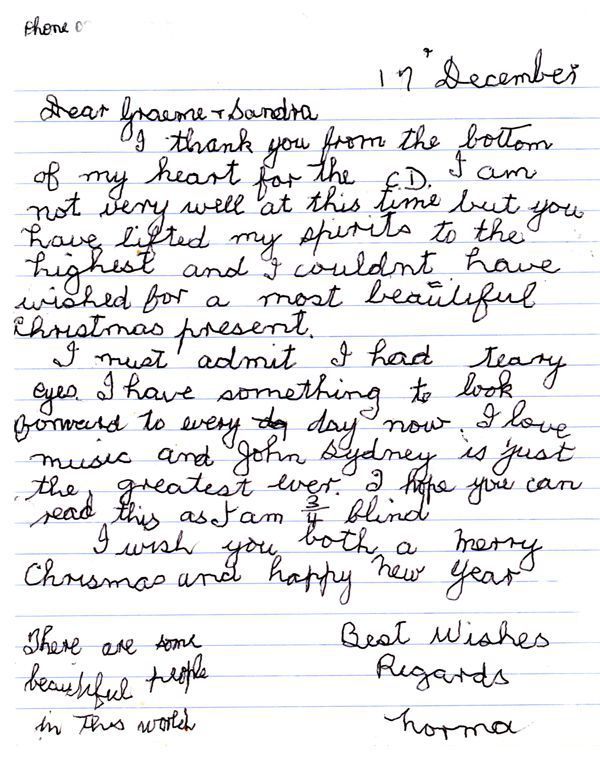 Phone
17 December
Dear Graeme + Sandra
I thank you from the bottom
of my heart for the C.D. I am
not very well at this time but you
have lifted my spirits to the
highest and I couldnt have
wished for a most beautiful
Christmas present.
I must admit I had teary
eyes. I have something to look
forward to every day now. I love
music and John Sydney is just
the greatest ever. I hope you can
read this as I am 3/4 blind
I wish you both a merry
Chrismas and happy New Year
There are some
beautiful people
in this world
Best Wishes
Regards
Norma